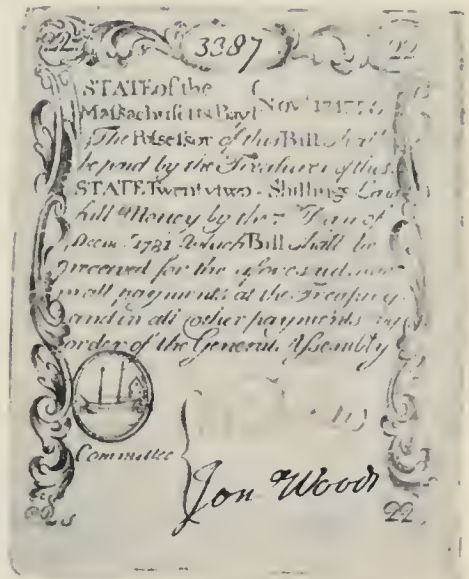 22 3387 22
STATE of the
Massachusetts Bay Nov. 17 177
The Possessor of this Bill shall
be paid by the Treasurer of this
STATE Twenty two - Shillings Law
full Money by the
Decm. 1781 Which Bill shall be
received for the aforesaid
in all payments at the Treasury
and in all other payments by
order of the General Assembly
Committee
Jon Woods
22